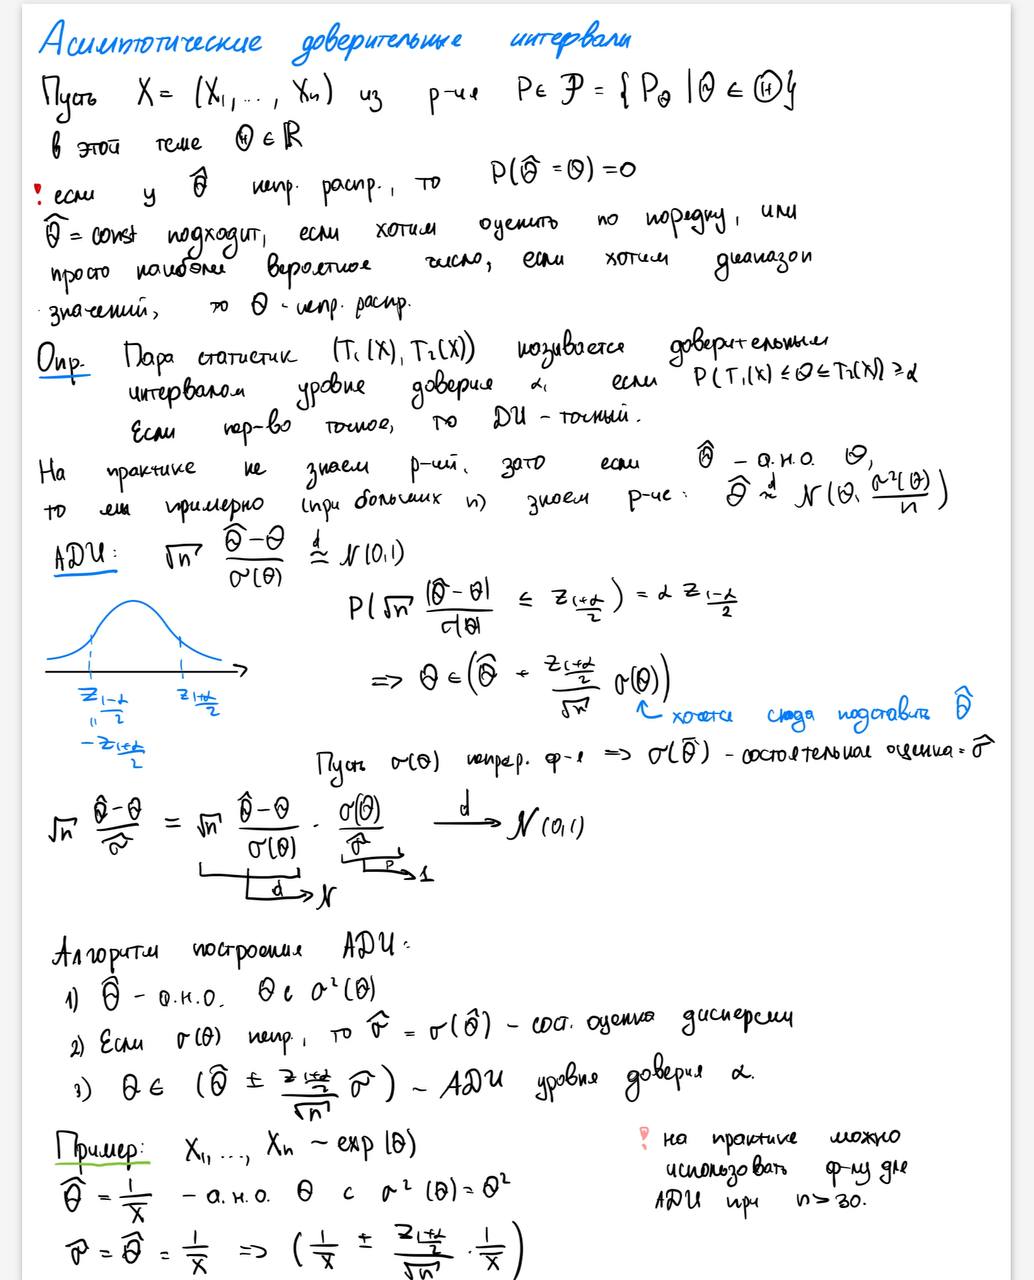 Асимптотические доверительные интервалы
Пусть X = (X₁, ..., Xₙ) из р-ия P ∈ 𝒫 = {P_θ | θ ∈ Θ}
в этой теме Θ ∈ ℝ
! если у θ̂ непр. распр., то P(θ̂ = θ) = 0
θ̂ = const подходит, если хотим оценить по порядку, или
просто наиболее вероятное число, если хотим диапазон
значений, то θ - непр. распр.
Опр. Пара статистик (T₁(X), T₂(X)) называется доверительным
интервалом уровня доверия α, если P(T₁(X) ≤ θ ≤ T₂(X)) ≥ α
Если нер-во точное, то ДИ – точный.
На практике не знаем р-ий, зато если θ̂ – а.н.о. θ,
то мы примерно (при больших n) знаем р-ие: θ̂ ≈ᵈ N(θ, σ²(θ)/n)
АДИ: √n (θ̂ - θ)/σ(θ) ≃ᵈ N(0,1)
P(√n |θ̂ - θ|/σ(θ) ≤ z_{(1+α)/2}) = α z_{(1-α)/2}
=> θ ∈ (θ̂ ± z_{(1+α)/2}/√n σ(θ))
z_{(1-α)/2} z_{(1+α)/2}
"
-z_{(1+α)/2}
хочется сюда подставить θ̂
Пусть σ(θ) непрер. ф-я => σ(θ̂) – состоятельная оценка = σ̂
√n (θ̂ - θ)/σ̂ = √n (θ̂ - θ)/σ(θ) · σ(θ)/σ̂ →ᵈ N(0,1)
→ᵈ N →ᵖ 1
Алгоритм построения АДИ:
1) θ̂ – а.н.о. θ с σ²(θ)
2) Если σ(θ) непр., то σ̂ = σ(θ̂) – сост. оценка дисперсии
3) θ ∈ (θ̂ ± z_{(1+α)/2}/√n σ̂) – АДИ уровня доверия α.
Пример: X₁, ..., Xₙ ~ exp(θ)
θ̂ = 1/X̄ – а.н.о. θ с σ²(θ) = θ²
σ̂ = θ̂ = 1/X̄ => (1/X̄ ± z_{(1+α)/2}/√n · 1/X̄)
! на практике можно
использовать ф-лу для
АДИ при n > 30.